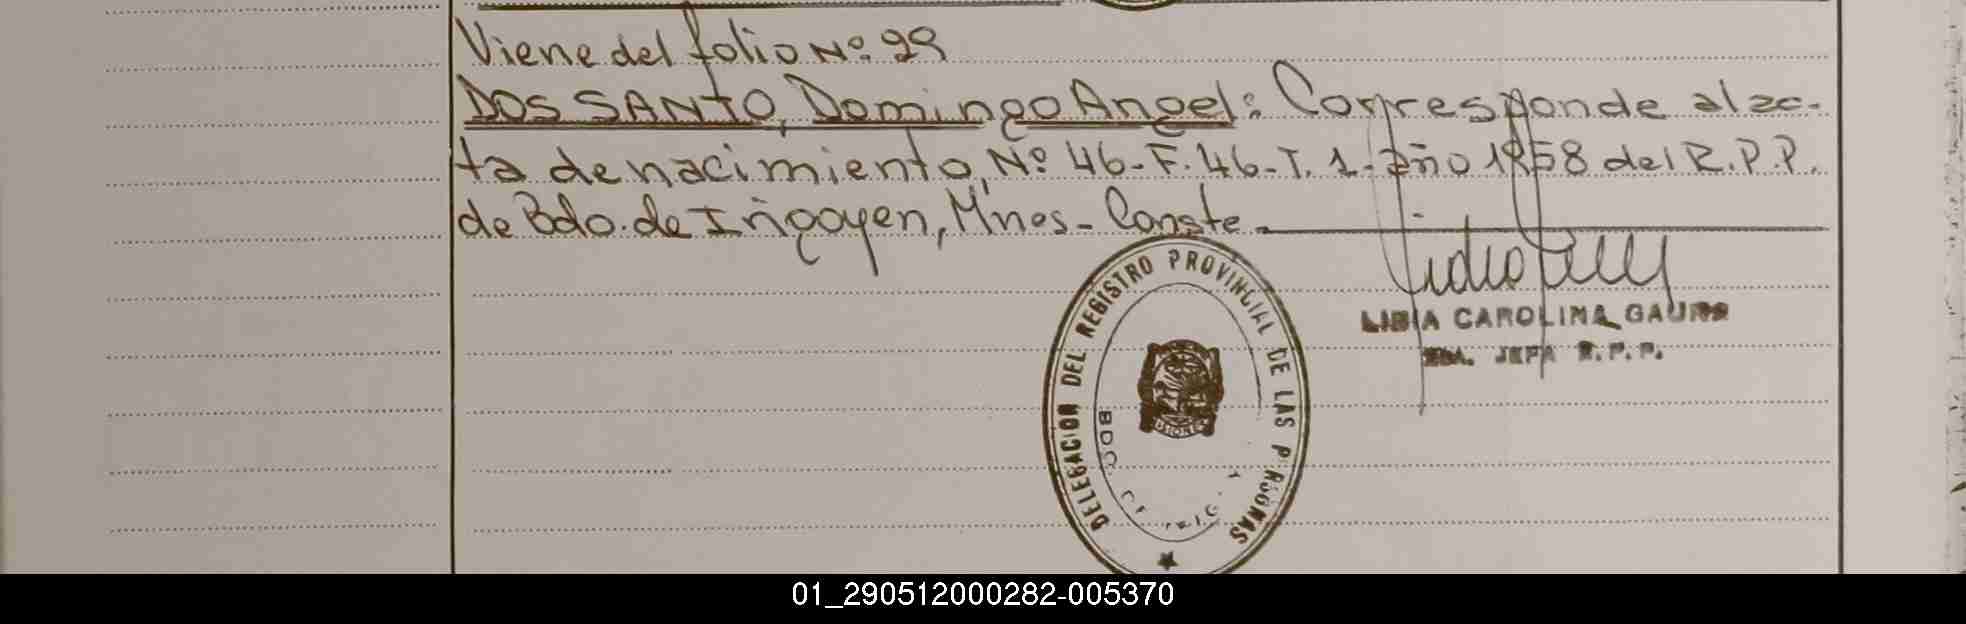 Viene del folio Nº 29
DOS SANTO, Domingo Angel: Corresponde al ac-
ta de nacimiento, Nº 46-F. 46-T. 1- año 1958 del R.P.P.
de Bdo. de Irigoyen, Mnes- Conste.
DELEGACION DEL REGISTRO PROVINCIAL DE LAS PERSONAS
BDO
MISIONES
CAROLINA GAUNA
JEFA R.P.P.
01_290512000282-005370